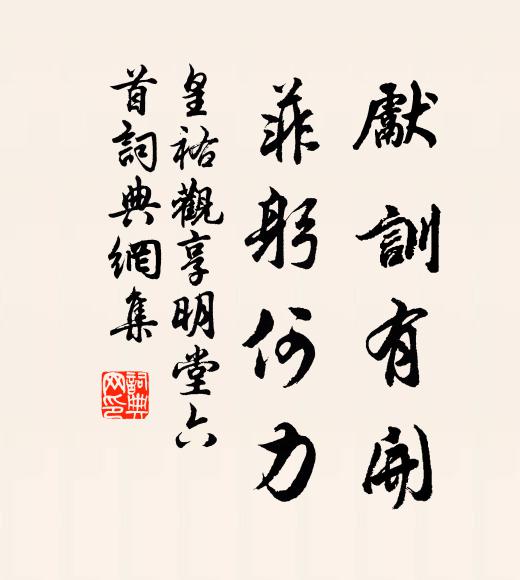 獻訓有開
菲躬何力
皇祐觀享明堂六
首詞典網集
詞典
网印